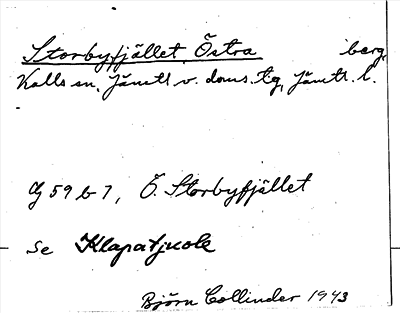 Storbyfjället, Östra berg,
Kalls sn, Jämtl v. doms. tg, Jämtl. l.
Gg 59 b 7, Ö. Storbyfjället
se Klapatjuole
Björn Collinder 1943